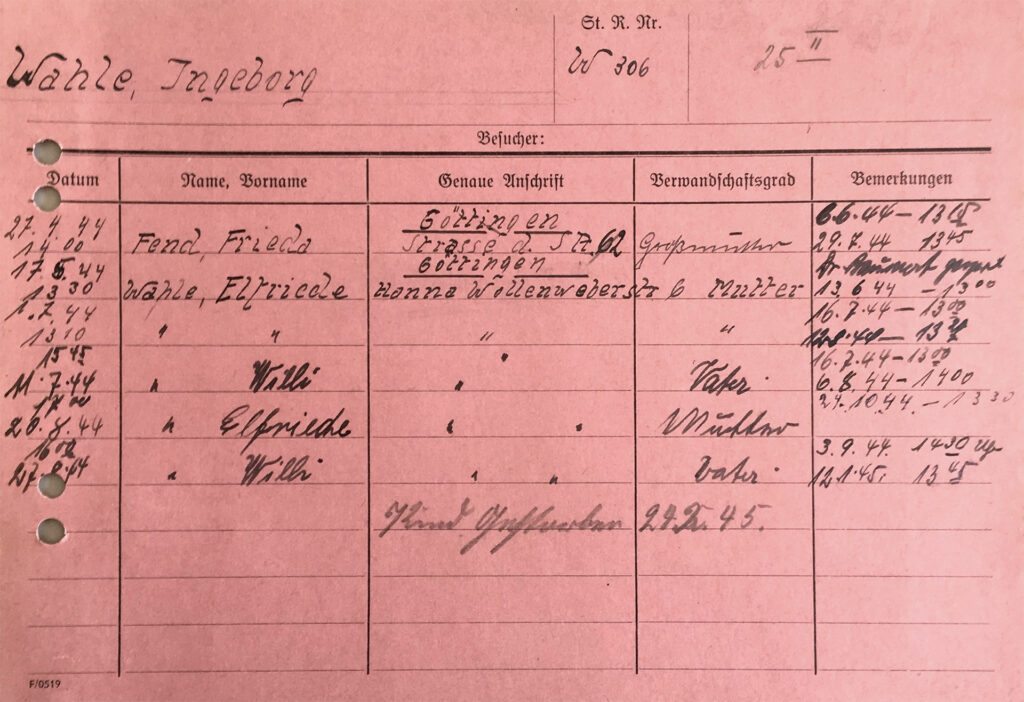 St. R. Nr.
Wahle, Ingeborg W 306 25 II
Besucher:
Datum Name, Vorname Genaue Anschrift Verwandschaftsgrad Bemerkungen
Göttingen 6.6.44 – 13 15
27.4.44 Fend, Frieda Strasse d. SA, 62 Großmutter 29.7.44 13 45
14 00 Göttingen
17.5.44 Wahle, Elfriede Hanna Wollenweberstr 6 Mutter 13.6.44 – 13 00
13 30 16.7.44 – 13 00
1.7.44 " " " "
13 10
15 45 " 16.7.44 – 13 00
11.7.44 " Willi " Vater 6.8.44 – 14 00
17 00 24.10.44 – 13 30
20.8.44 " Elfriede " " Mutter
3.9.44 14 30
" Willi " " Vater 12.1.45. 13 45
Kind Gestorben 45.
F/0519